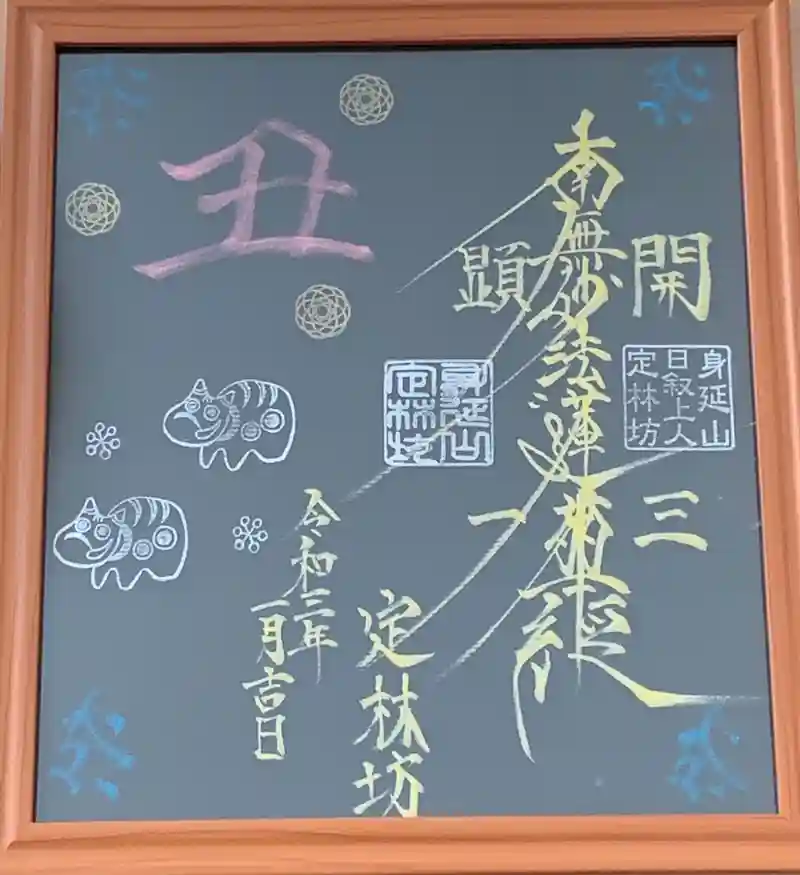 開三
身延山
日叙上人
定林坊
南無妙法蓮華経
顕一
身延山
定林坊
定林坊
令和三年
一月吉日
丑